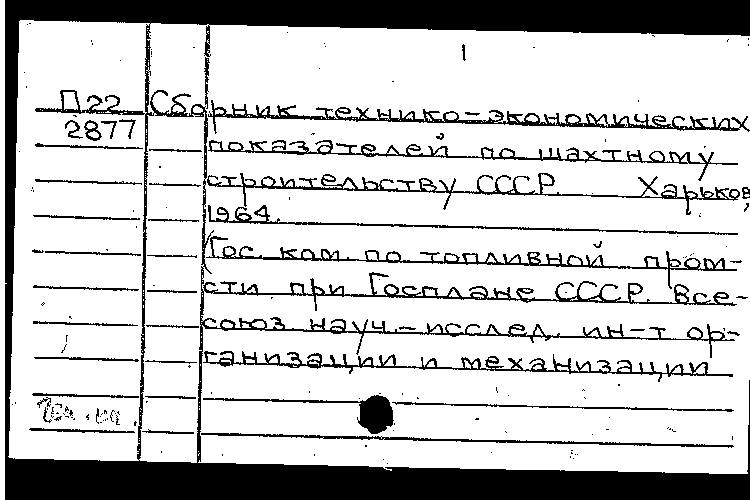 1
П22 Сборник технико-экономических
2877 показателей по шахтному
строительству СССР. Харьков,
1964.
(Гос. ком. по топливной пром-
сти при Госплане СССР. Все-
союз. науч.-исслед. ин-т ор-
ганизации и механизации